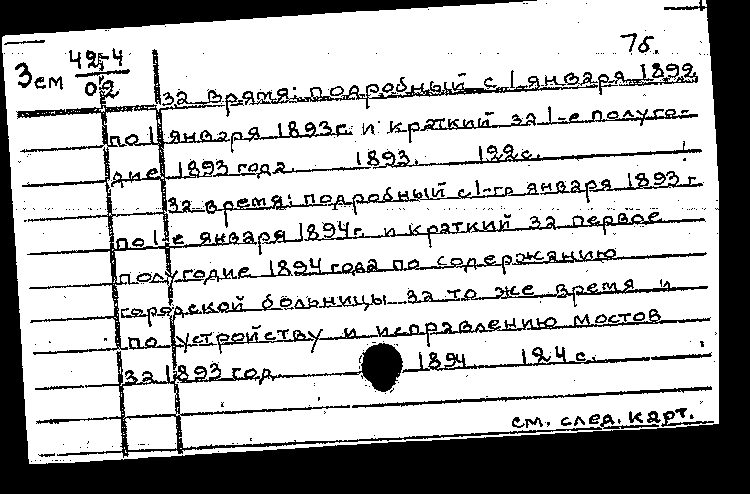 75.
Зем 42-4
02
за время: подробный с 1 января 1892
по 1 января 1893г. и краткий за 1-е полуго-
дие 1893 года. 1893. 122с.
За время: подробный с 1-го января 1893 г.
по 1-е января 1894г. и краткий за первое
полугодие 1894 года по содержанию
городской больницы за то же время и
по устройству и исправлению мостов
за 1893 год. 1894 124 с.
см. след. карт.